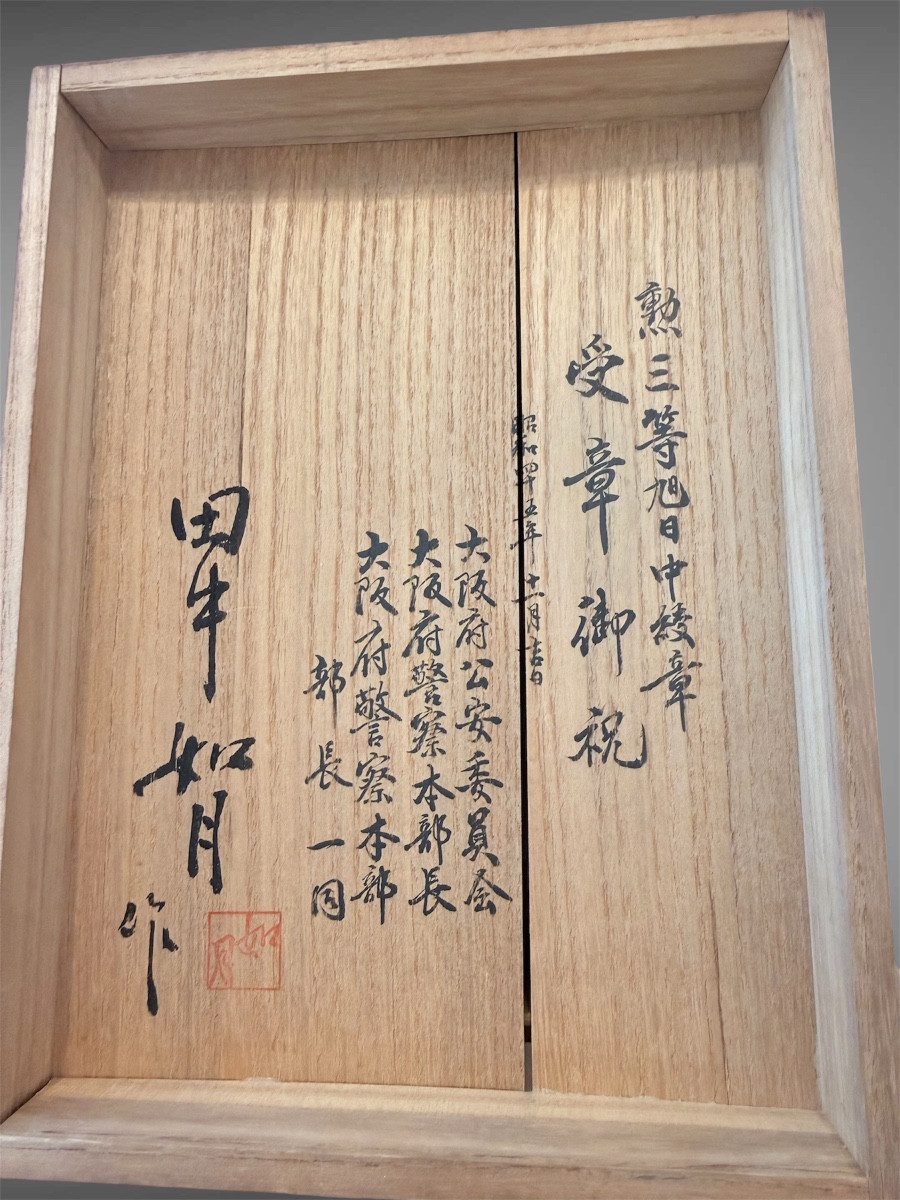 勲三等旭日中綬章
受章御祝
昭和四十五年十一月吉日
大阪府公安委員会
大阪府警察本部長
大阪府警察本部
部長一同
田中如月
作
如月